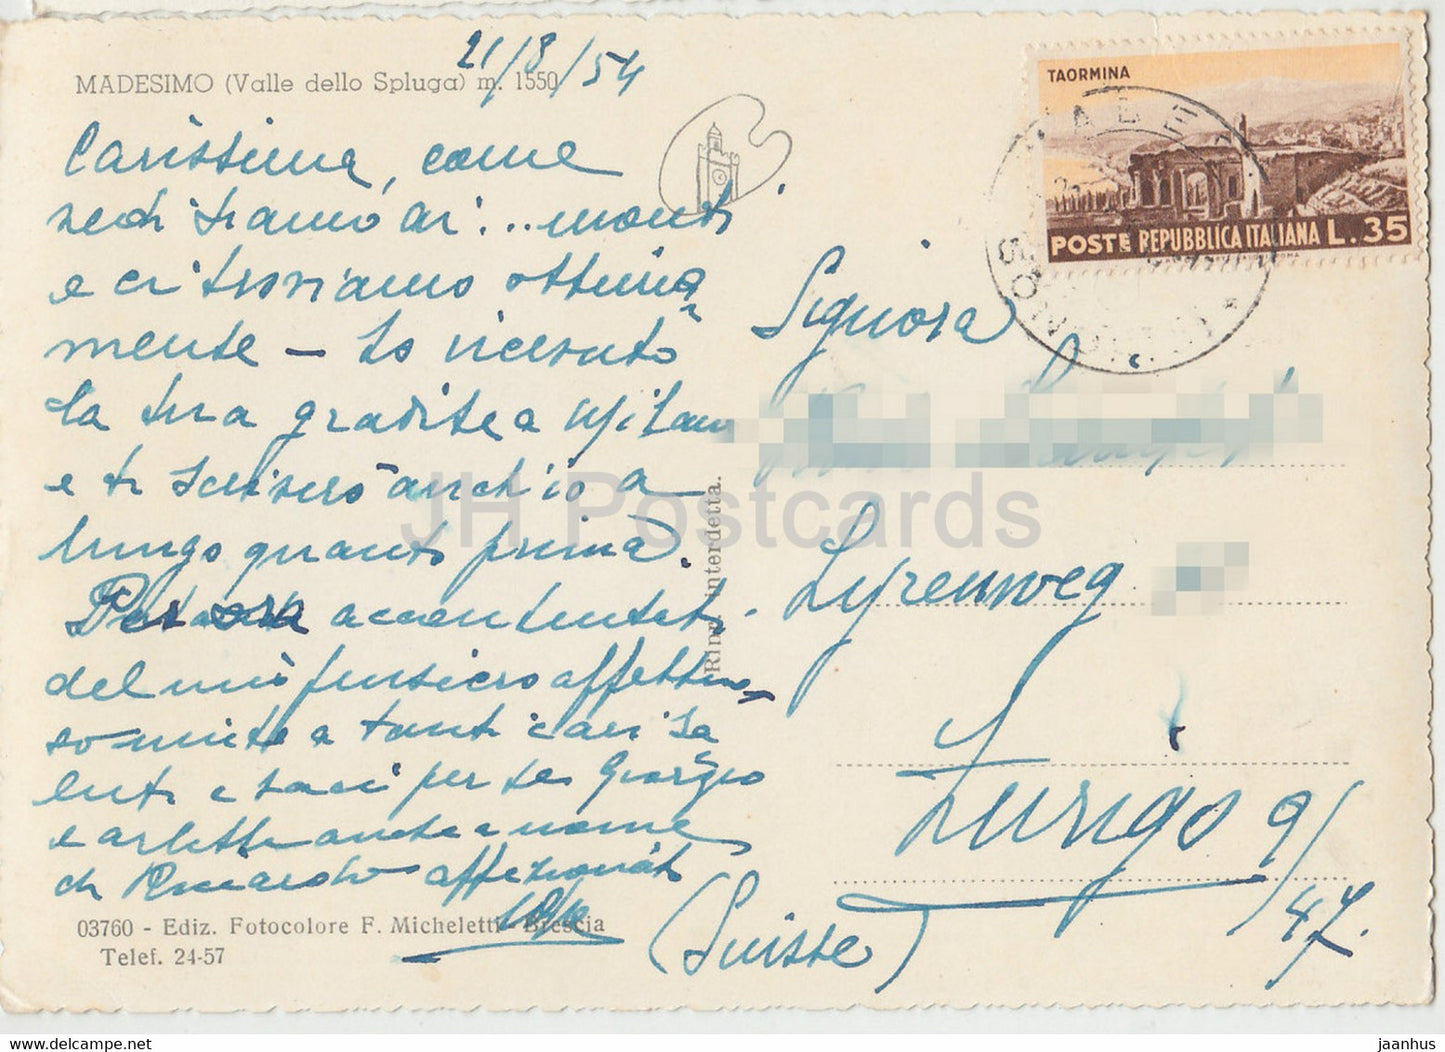 21/8/54
MADESIMO (Valle dello Spluga) m. 1550
Carissima, come
vedi siamo ai... monti
e ci troviamo ottima
mente — Ho ricevuto
la tua gradita a Milano
e ti scriverò anch'io a
lungo quanto prima.
Per ora accontentati
del mio pensiero affettuo
so unito a tanti cari sa
luti e baci per te Giorgio
e Arlette anche a nome
di Riccardo affezionati
03760 - Ediz. Fotocolore F. Micheletti - Brescia
Telef. 24-57
Ripr. interdetta.
TAORMINA
POSTE REPUBBLICA ITALIANA L. 35
Signora
Lyrenweg
Zurigo 9/
47.
(Suisse)
JH Postcards
jaanhus
delcampe.net